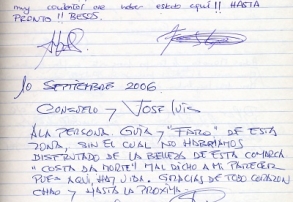 muy contentos de haber estado aquí!! HASTA
PRONTO!! BESOS.
10 SEPTIEMBRE 2006.
CONSUELO Y JOSE LUIS
A LA PERSONA GUIA Y "FARO" DE ESTA
ZONA, SIN EL CUAL NO HUBIERAMOS
DISFRUTADO DE LA BELLEZA DE ESTA COMARCA
"COSTA DA MORTE" MAL DICHO A MI PARECER
PUES AQUI, HAY VIDA. GRACIAS DE TODO CORAZON
CHAO Y HASTA LA PROXIMA